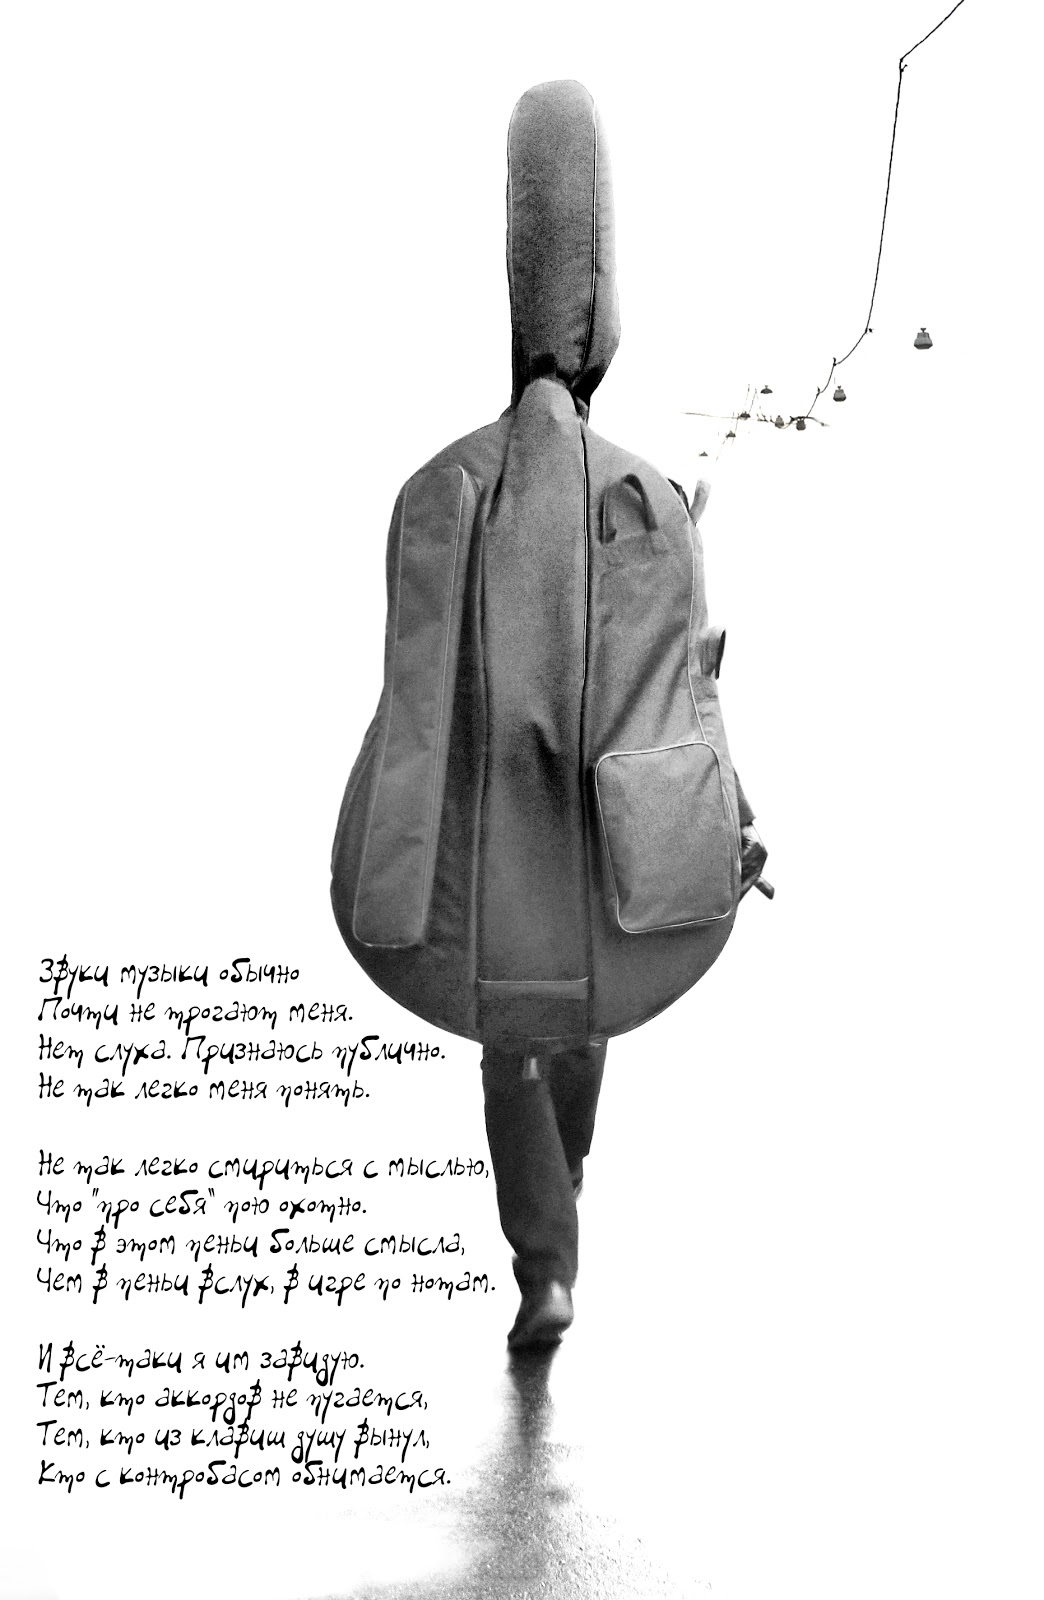 Звуки музыки обычно
Почти не трогают меня.
Нет слуха. Признаюсь публично.
Не так легко меня понять.
Не так легко смириться с мыслью,
Что "про себя" пою охотно.
Что в этом пеньи больше смысла,
Чем в пеньи вслух, в игре по нотам.
И всё-таки я им завидую.
Тем, кто аккордов не пугается,
Тем, кто из клавиш душу вынул,
Кто с контробасом обнимается.